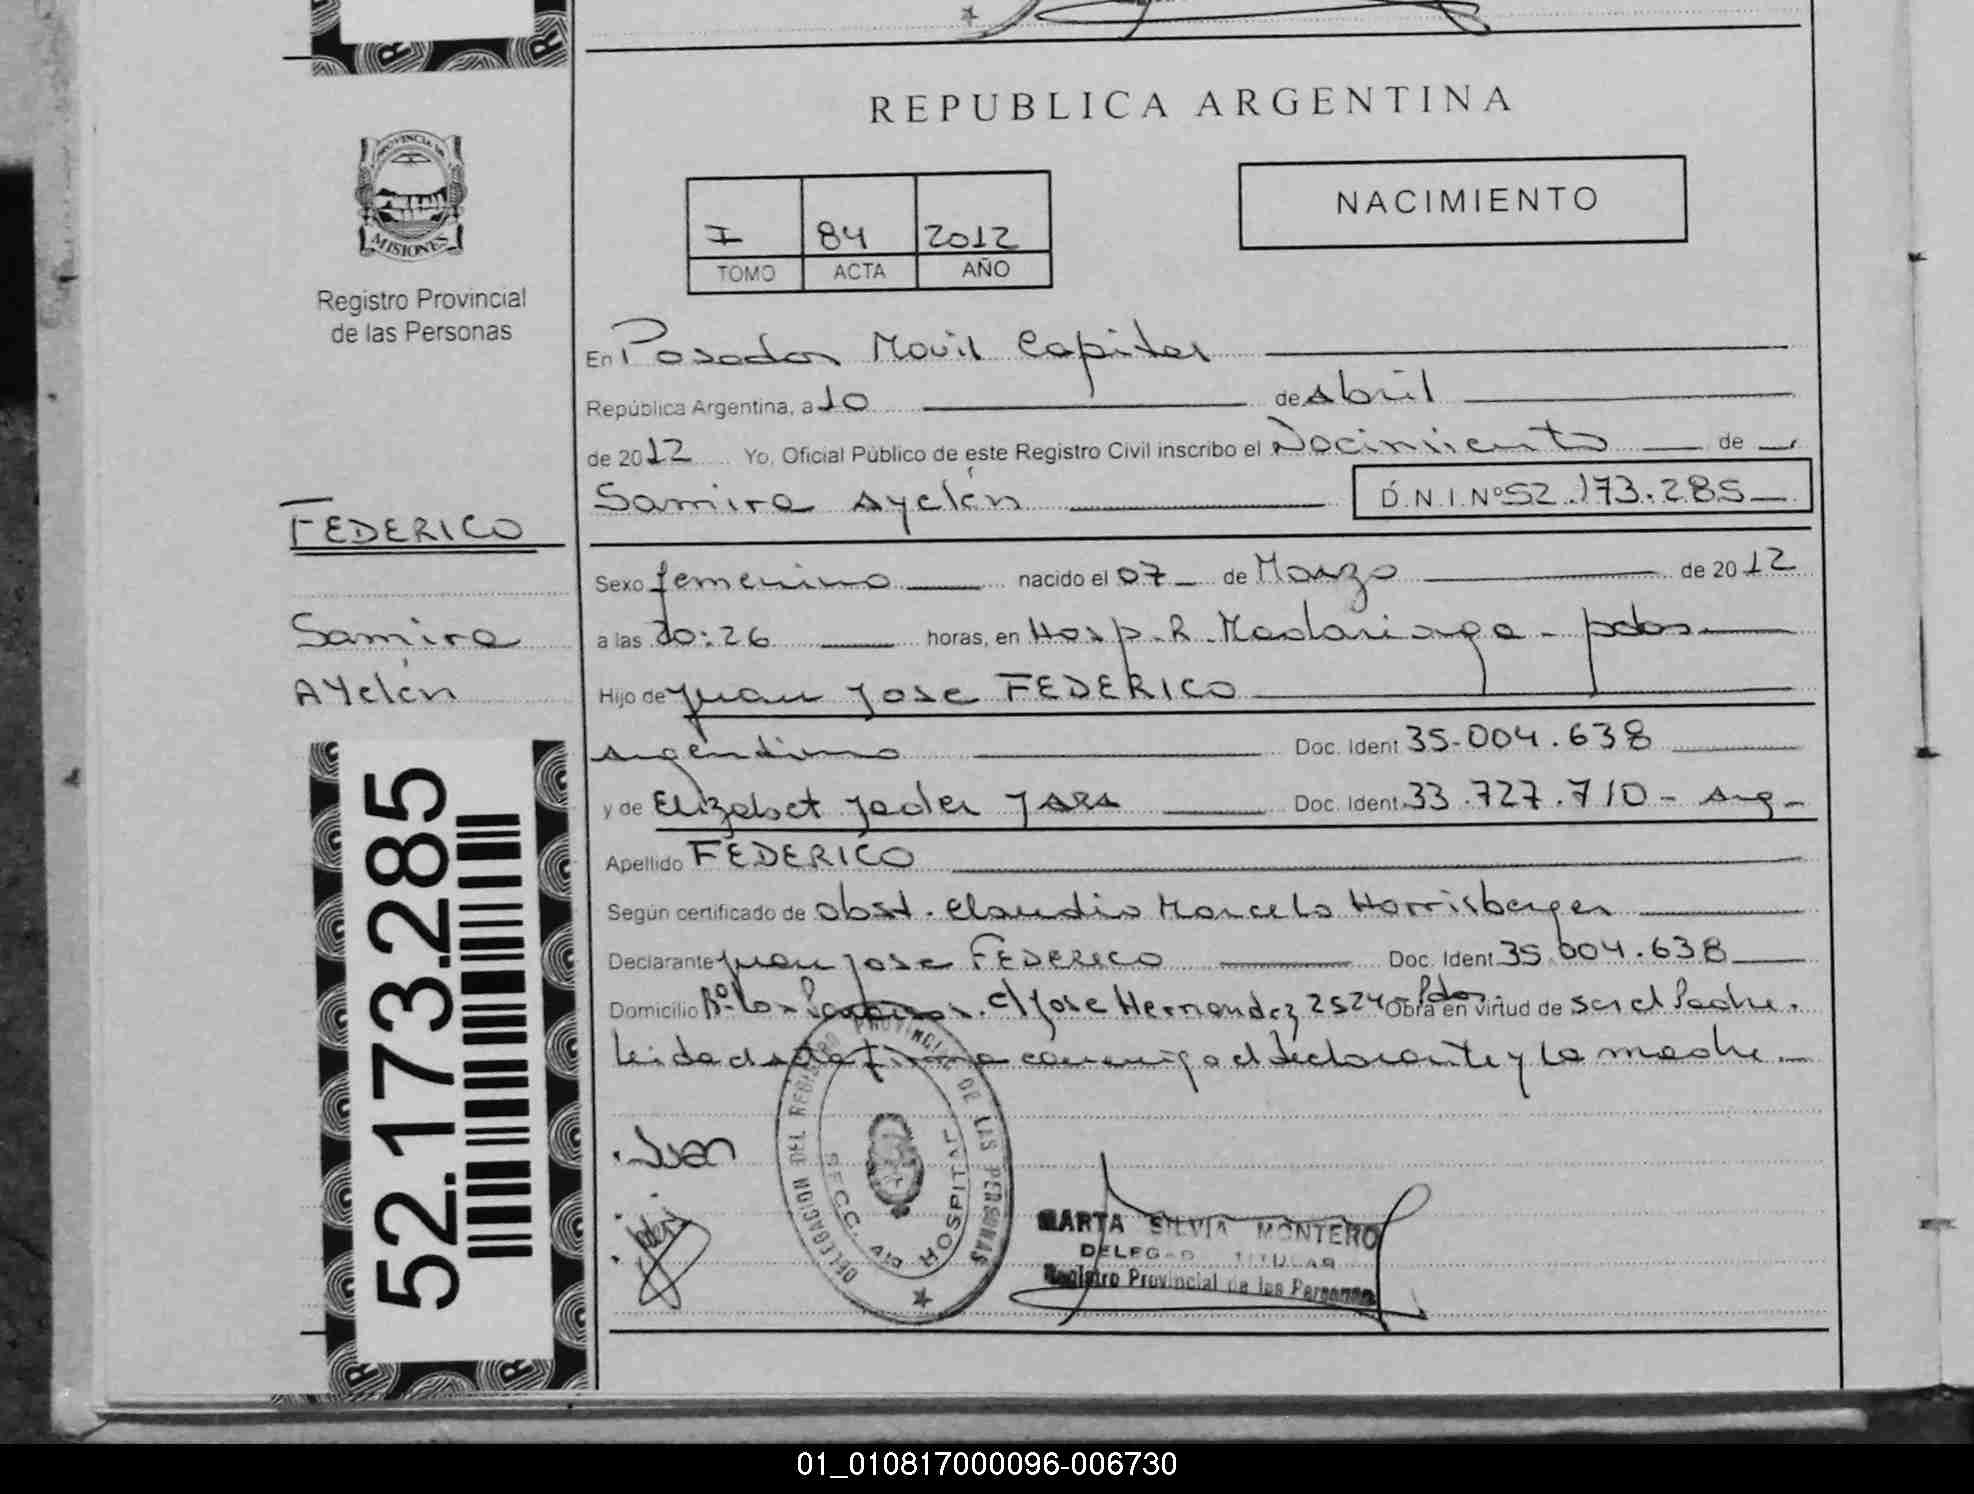 REPUBLICA ARGENTINA
PROVINCIA DE
MISIONES
Registro Provincial
de las Personas
I 84 2012
TOMO ACTA AÑO
NACIMIENTO
En Posadas Movil Capital
República Argentina, a 10 de Abril
de 2012 Yo, Oficial Público de este Registro Civil inscribo el Nacimiento de
Samira Ayelén D.N.I.Nº 52.173.285
FEDERICO
Samira
Ayelén
Sexo femenino nacido el 07 de Marzo de 2012
a las 20:26 horas, en Hosp. R. Madariaga - pdas
Hijo de Juan Jose FEDERICO
Argentino Doc. Ident 35.004.638
y de Elizabet YARA Doc. Ident. 33.727.710 - Arg -
Apellido FEDERICO
Según certificado de obst. Claudio Marcelo Horrisberger
Declarante Juan Jose FEDERICO Doc. Ident 35.004.638
Domicilio Bº Los C/ Jose Hernandez 2524 - Pdas. Obra en virtud de ser el Padre.
Leida el acta firma conmigo el declarante y la madre.
52.173.285
Juan
DELEGACION DEL REGISTRO PROVINCIAL DE LAS PERSONAS
SECC. HOSPITAL
MARTA SILVIA MONTERO
DELEGADA TITULAR
Registro Provincial de las Personas
01_010817000096-006730